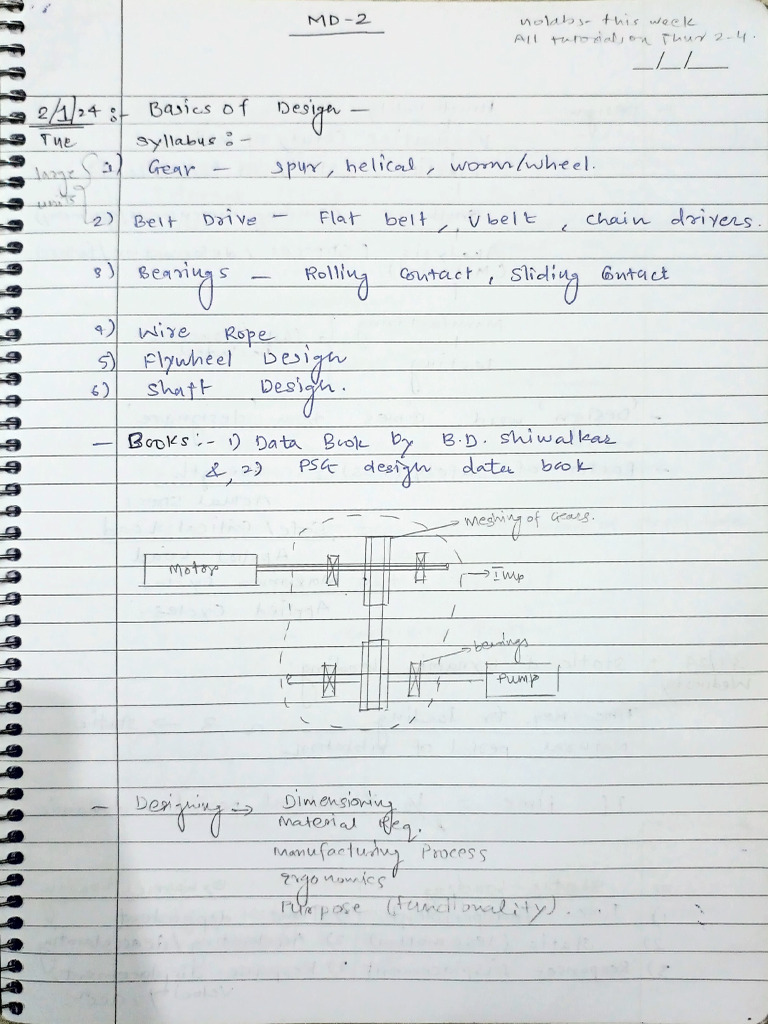 MD-2
nolabs- this week
All tutorials on Thur 2-4.
__/__/__
2/1/24 :- Basics of Design —
Tue syllabus :-
large units { 1) Gear — spur, helical, worm/wheel.
2) Belt Drive — Flat belt, V belt, chain drivers.
3) Bearings — Rolling Contact, Sliding Contact
4) Wire Rope
5) Flywheel Design
6) Shaft Design.
— Books :- 1) Data Book by B.D. Shiwalkar
&, 2) PSG design data book
meshing of Gears.
Motor
→ Imp
bearings
Pump
— Designing => Dimensioning
Material Req.
Manufacturing Process
Ergonomics
Purpose (functionality).